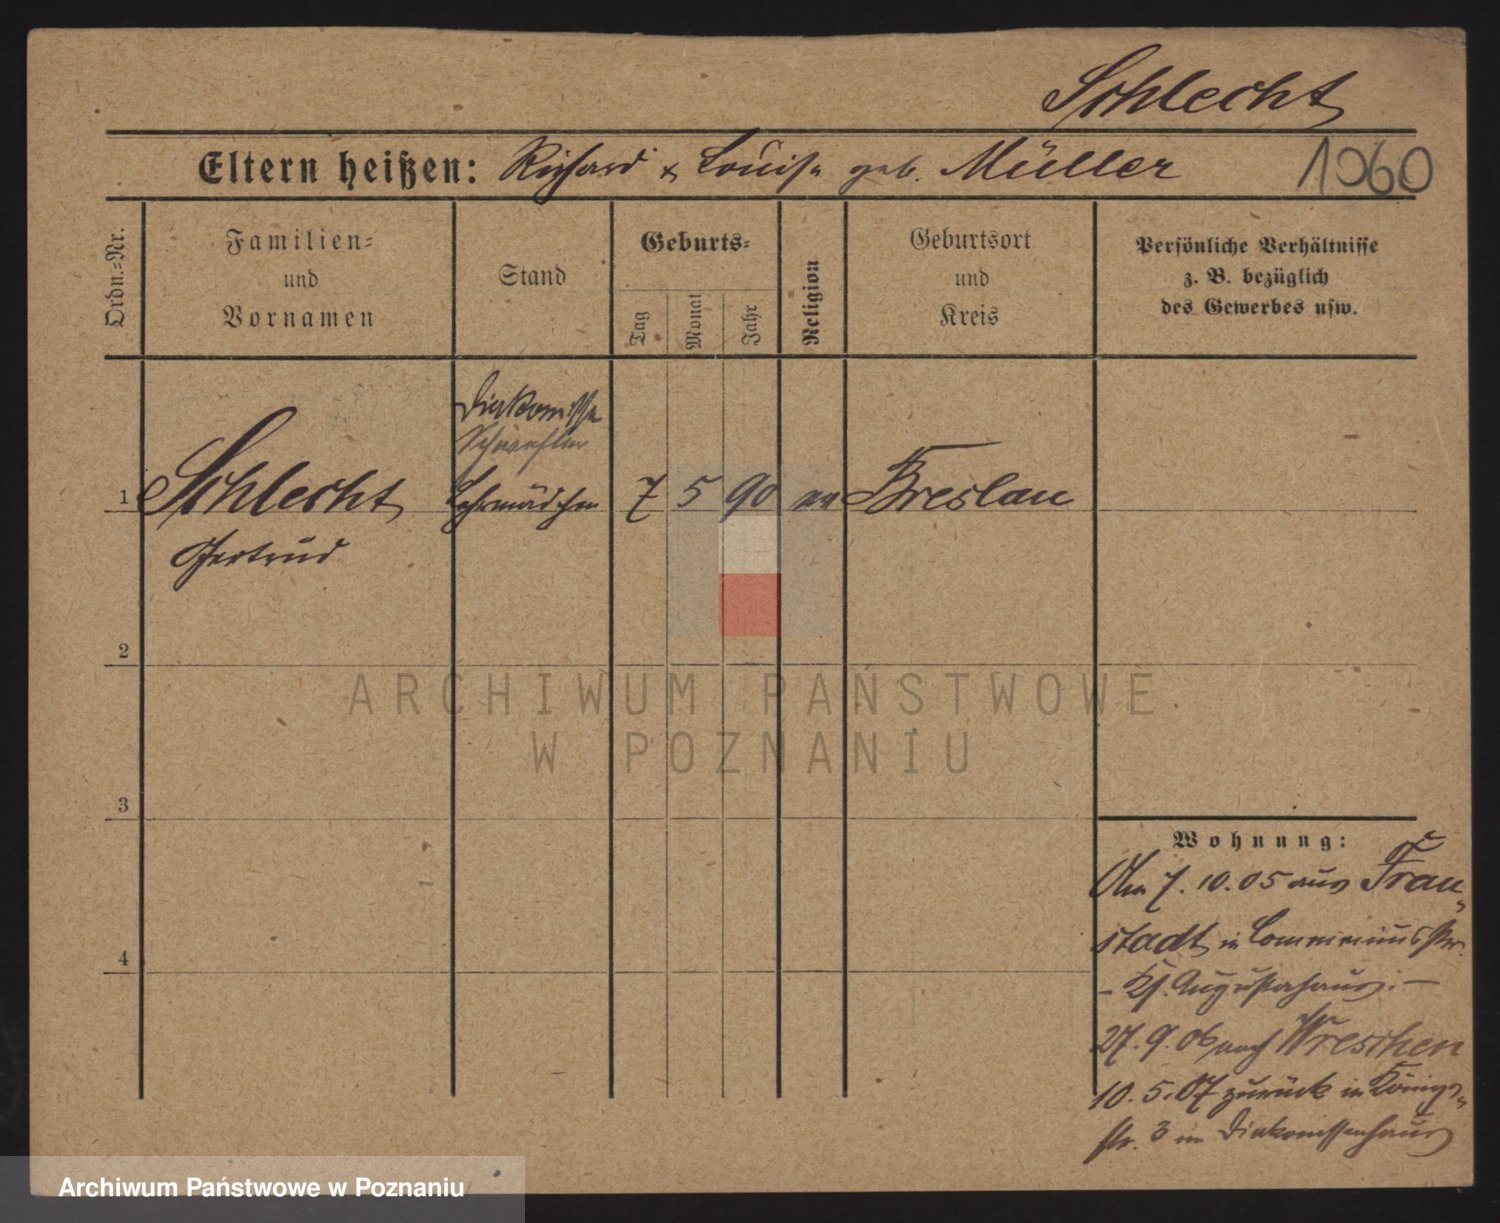 Schlecht
Eltern heißen: Richard & Louise geb. Müller 1060
Ordn.=Nr.
Familien=
und
Vornamen
Stand
Geburts=
Tag
Monat
Jahr
Religion
Geburtsort
und
Kreis
Persönliche Verhältnisse
z. B. bezüglich
des Gewerbes usw.
Diakonisse
Schwester
1 Schlecht Lehrmädchen 7 5 90 ev Breslau
Gertrud
2
3
4
ARCHIWUM PAŃSTWOWE
W POZNANIU
Wohnung:
Am 7. 10. 05 aus Frau=
stadt in
Augustahaus. —
27. 9. 06 nach Wreschen
10. 5. 07 zurück in Königs=
str. 3 im Diakonissenhaus
Archiwum Państwowe w Poznaniu